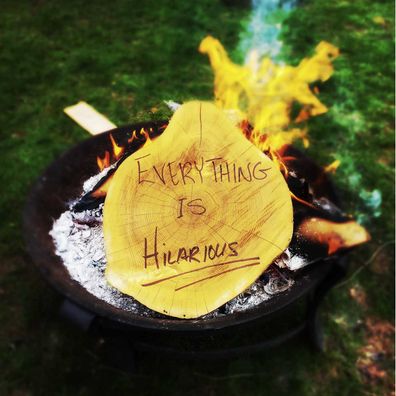 EVERYTHING
IS
HILARIOUS